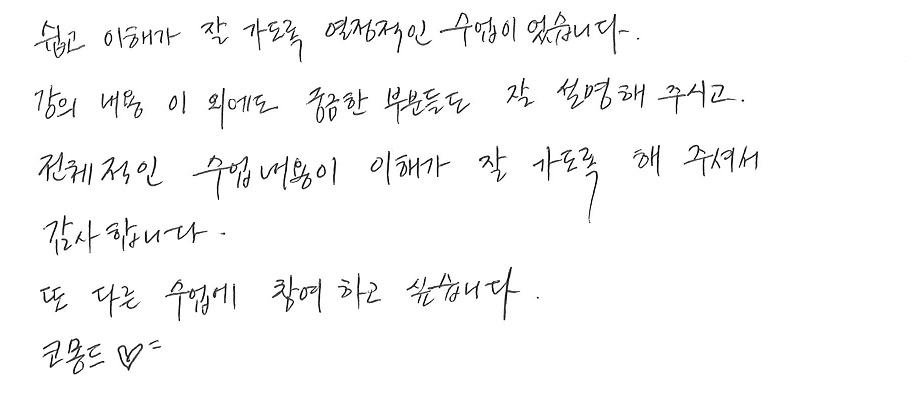 쉽고 이해가 잘 가도록 열정적인 수업이었습니다.
강의 내용 이 외에도 궁금한 부분들도 잘 설명해 주시고.
전체적인 수업내용이 이해가 잘 가도록 해 주셔서
감사합니다.
또 다른 수업에 참여하고 싶습니다.
코몽드 ♡=